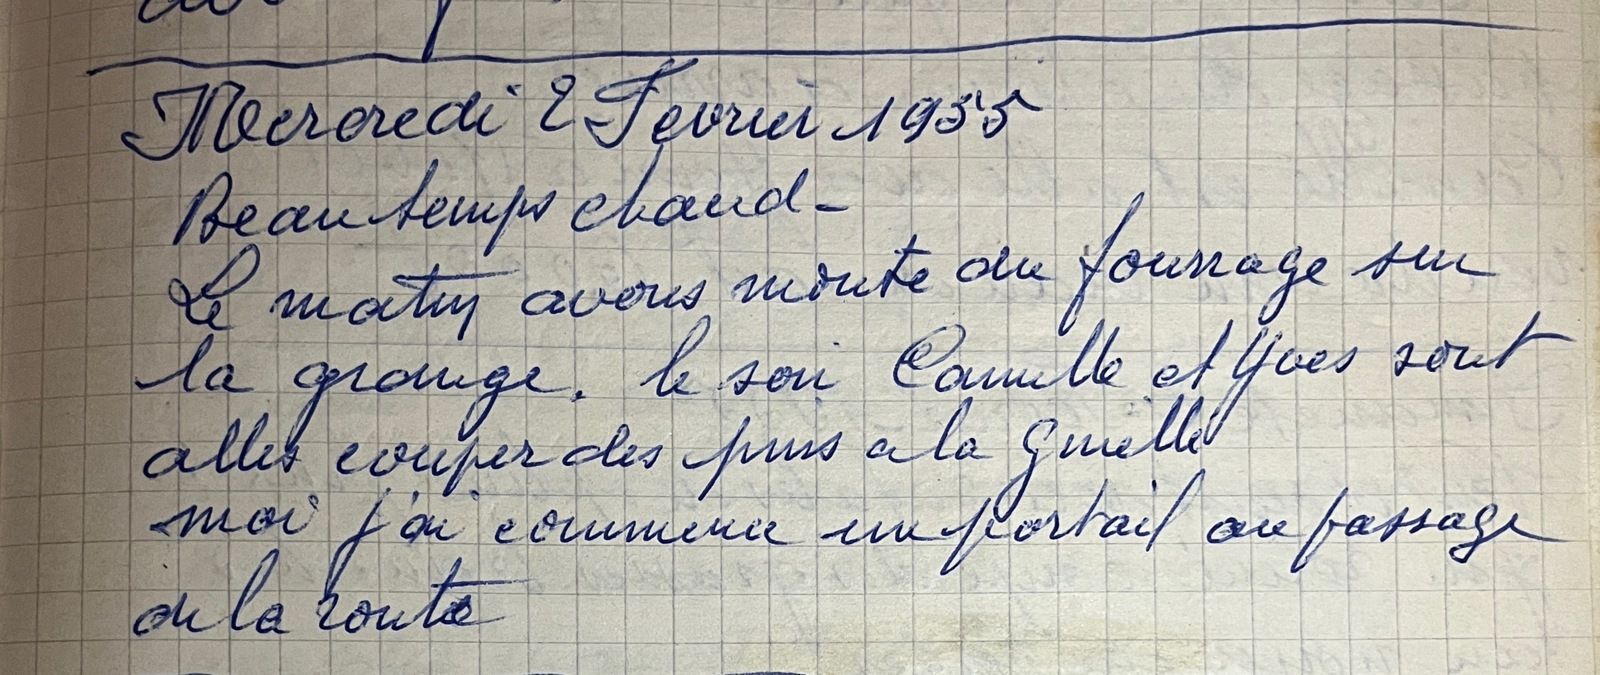 Mercredi 2 Fevrier 1955
Beau temps chaud -
Le matin avons monte du fourrage sur
la grange. le soir Camille et Yves sont
alles couper des pins a la Guelle
moi j'ai commence un portail au passage
de la route